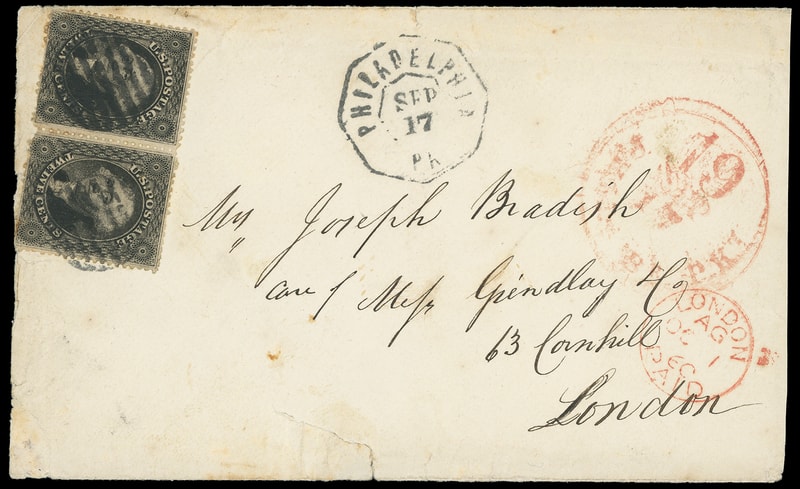 U.S. POSTAGE
U.S. POSTAGE
TWELVE CENTS
PHILADELPHIA
SEP
17
PA
19
BR. PKT
Joseph Bradish
care of Messrs Grindlay & Co
63 Cornhill
London
LONDON
AG
OC 1
60
PAID